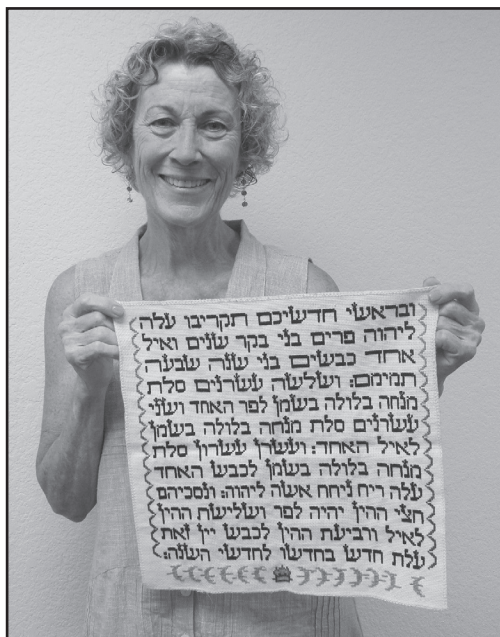 ובראשי חדשיכם תקריבו עלה
ליהוה פרים בני בקר שנים ואיל
אחד כבשים בני שנה שבעה
תמימם: ושלשה עשרנים סלת
מנחה בלולה בשמן לפר האחד ושני
עשרנים סלת מנחה בלולה בשמן
לאיל האחד: ועשרן עשרון סלת
מנחה בלולה בשמן לכבש האחד
עלה ריח ניחח אשה ליהוה: ונסכיהם
חצי ההין יהיה לפר ושלישת ההין
לאיל ורביעת ההין לכבש יין זאת
עלת חדש בחדשו לחדשי השנה: